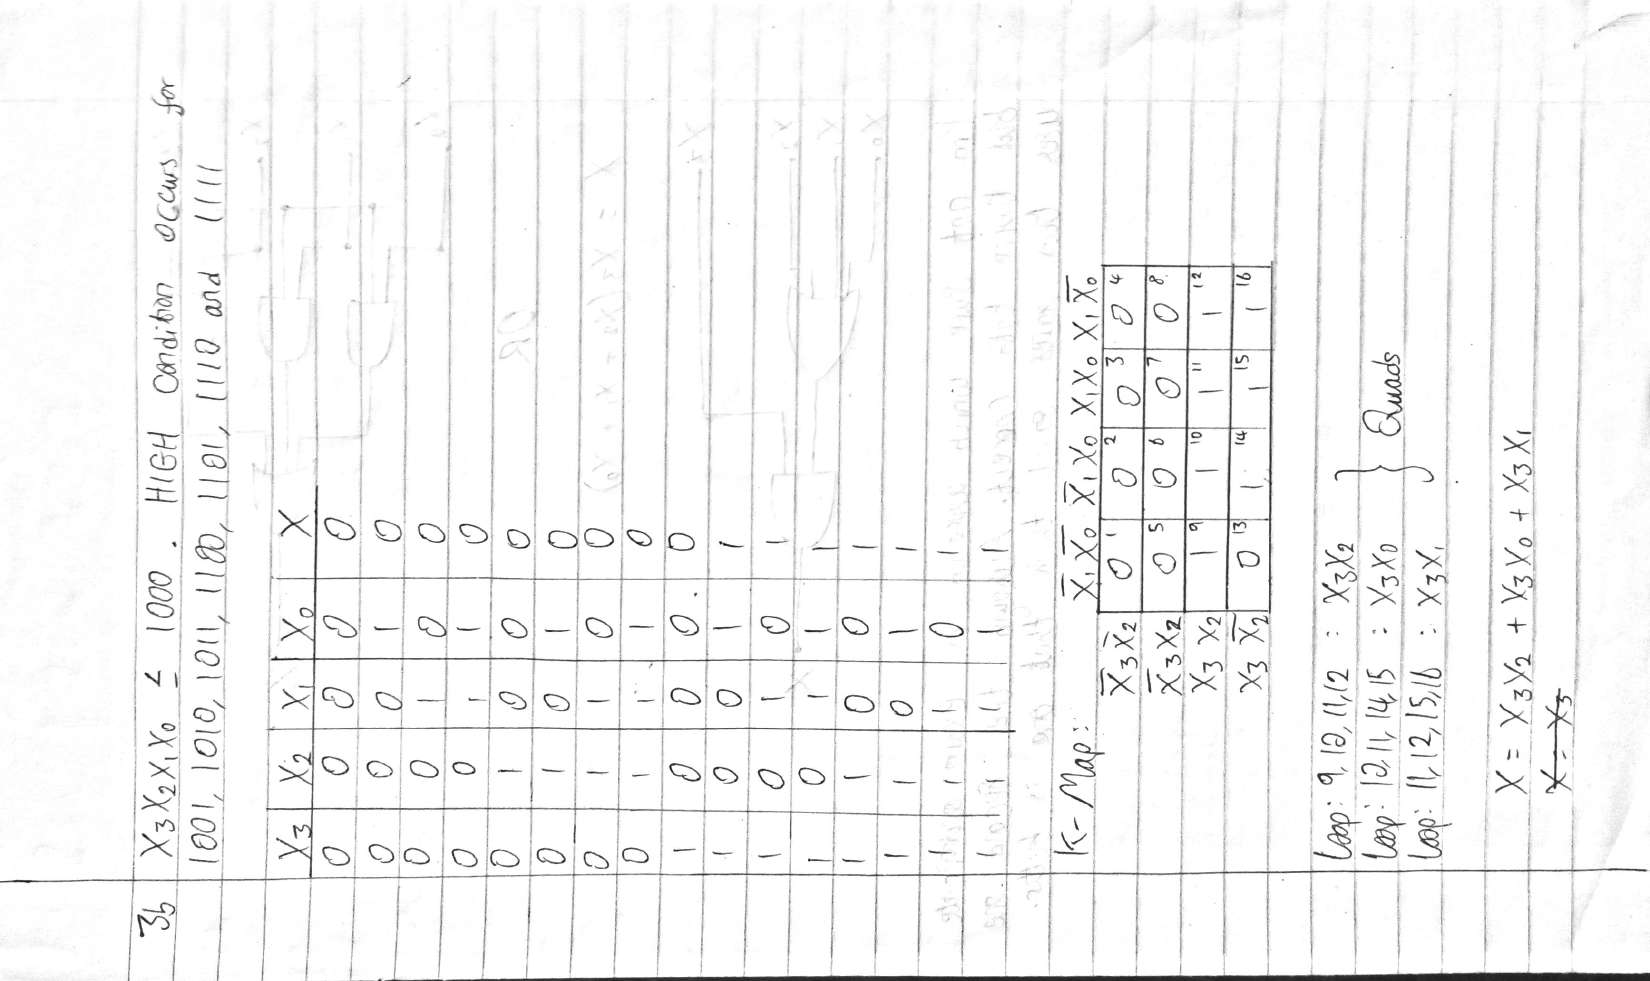 3b X₃X₂X₁X₀ ≤ 1000 . HIGH Condition occurs for
1001, 1010, 1011, 1100, 1101, 1110 and 1111
X₃ X₂ X₁ X₀ X
0 0 0 0 0
0 0 0 1 0
0 0 1 0 0
0 0 1 1 0
0 1 0 0 0
0 1 0 1 0
0 1 1 0 0
0 1 1 1 0
1 0 0 0 0
1 0 0 1 1
1 0 1 0 1
1 0 1 1 1
1 1 0 0 1
1 1 0 1 1
1 1 1 0 1
1 1 1 1 1
K-Map:
X̄₁X̄₀ X̄₁X₀ X₁X₀ X₁X̄₀
X̄₃X̄₂ 0 1 0 2 0 3 0 4
X̄₃X₂ 0 5 0 6 0 7 0 8
X₃X₂ 1 9 1 10 1 11 1 12
X₃X̄₂ 0 13 1 14 1 15 1 16
Loop: 9, 10, 11, 12 : X₃X₂
Loop: 10, 11, 14, 15 : X₃X₀ } Quads
Loop: 11, 12, 15, 16 : X₃X₁
X = X₃X₂ + X₃X₀ + X₃X₁
X = X₃